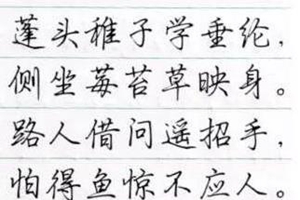 蓬头稚子学垂纶，
侧坐莓苔草映身。
路人借问遥招手，
怕得鱼惊不应人。